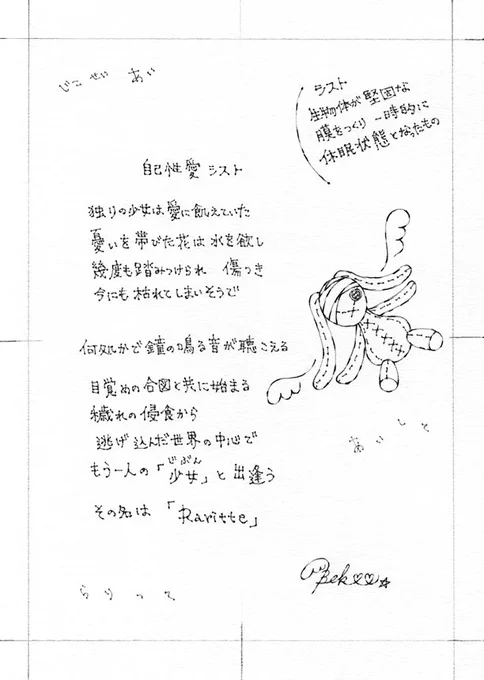 じこせい あい
シスト
生物体が堅固な
膜をつくり 一時的に
休眠状態となったもの
自己性愛シスト
独りの少女は愛に飢えていた
憂いを帯びた花は水を欲し
幾度も踏みつけられ 傷つき
今にも枯れてしまいそうで
何処かで鐘の鳴る音が聴こえる
目覚めの合図と共に始まる
穢れの侵食から
逃げ込んだ世界の中心で
じぶん
もう一人の「少女」と出逢う
その名は「Raritte」
あいしと
らりって